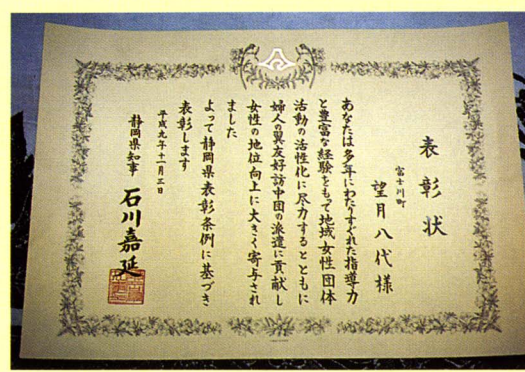 表彰状
富士川町
望月八代様
あなたは多年にわたりすぐれた指導力
と豊富な経験をもって地域女性団体
活動の活性化に尽力するとともに
婦人の翼友好訪中団の派遣に貢献し
女性の地位向上に大きく寄与され
ました
よって静岡県表彰条例に基づき
表彰します
平成九年十一月三日
静岡県知事 石川嘉延